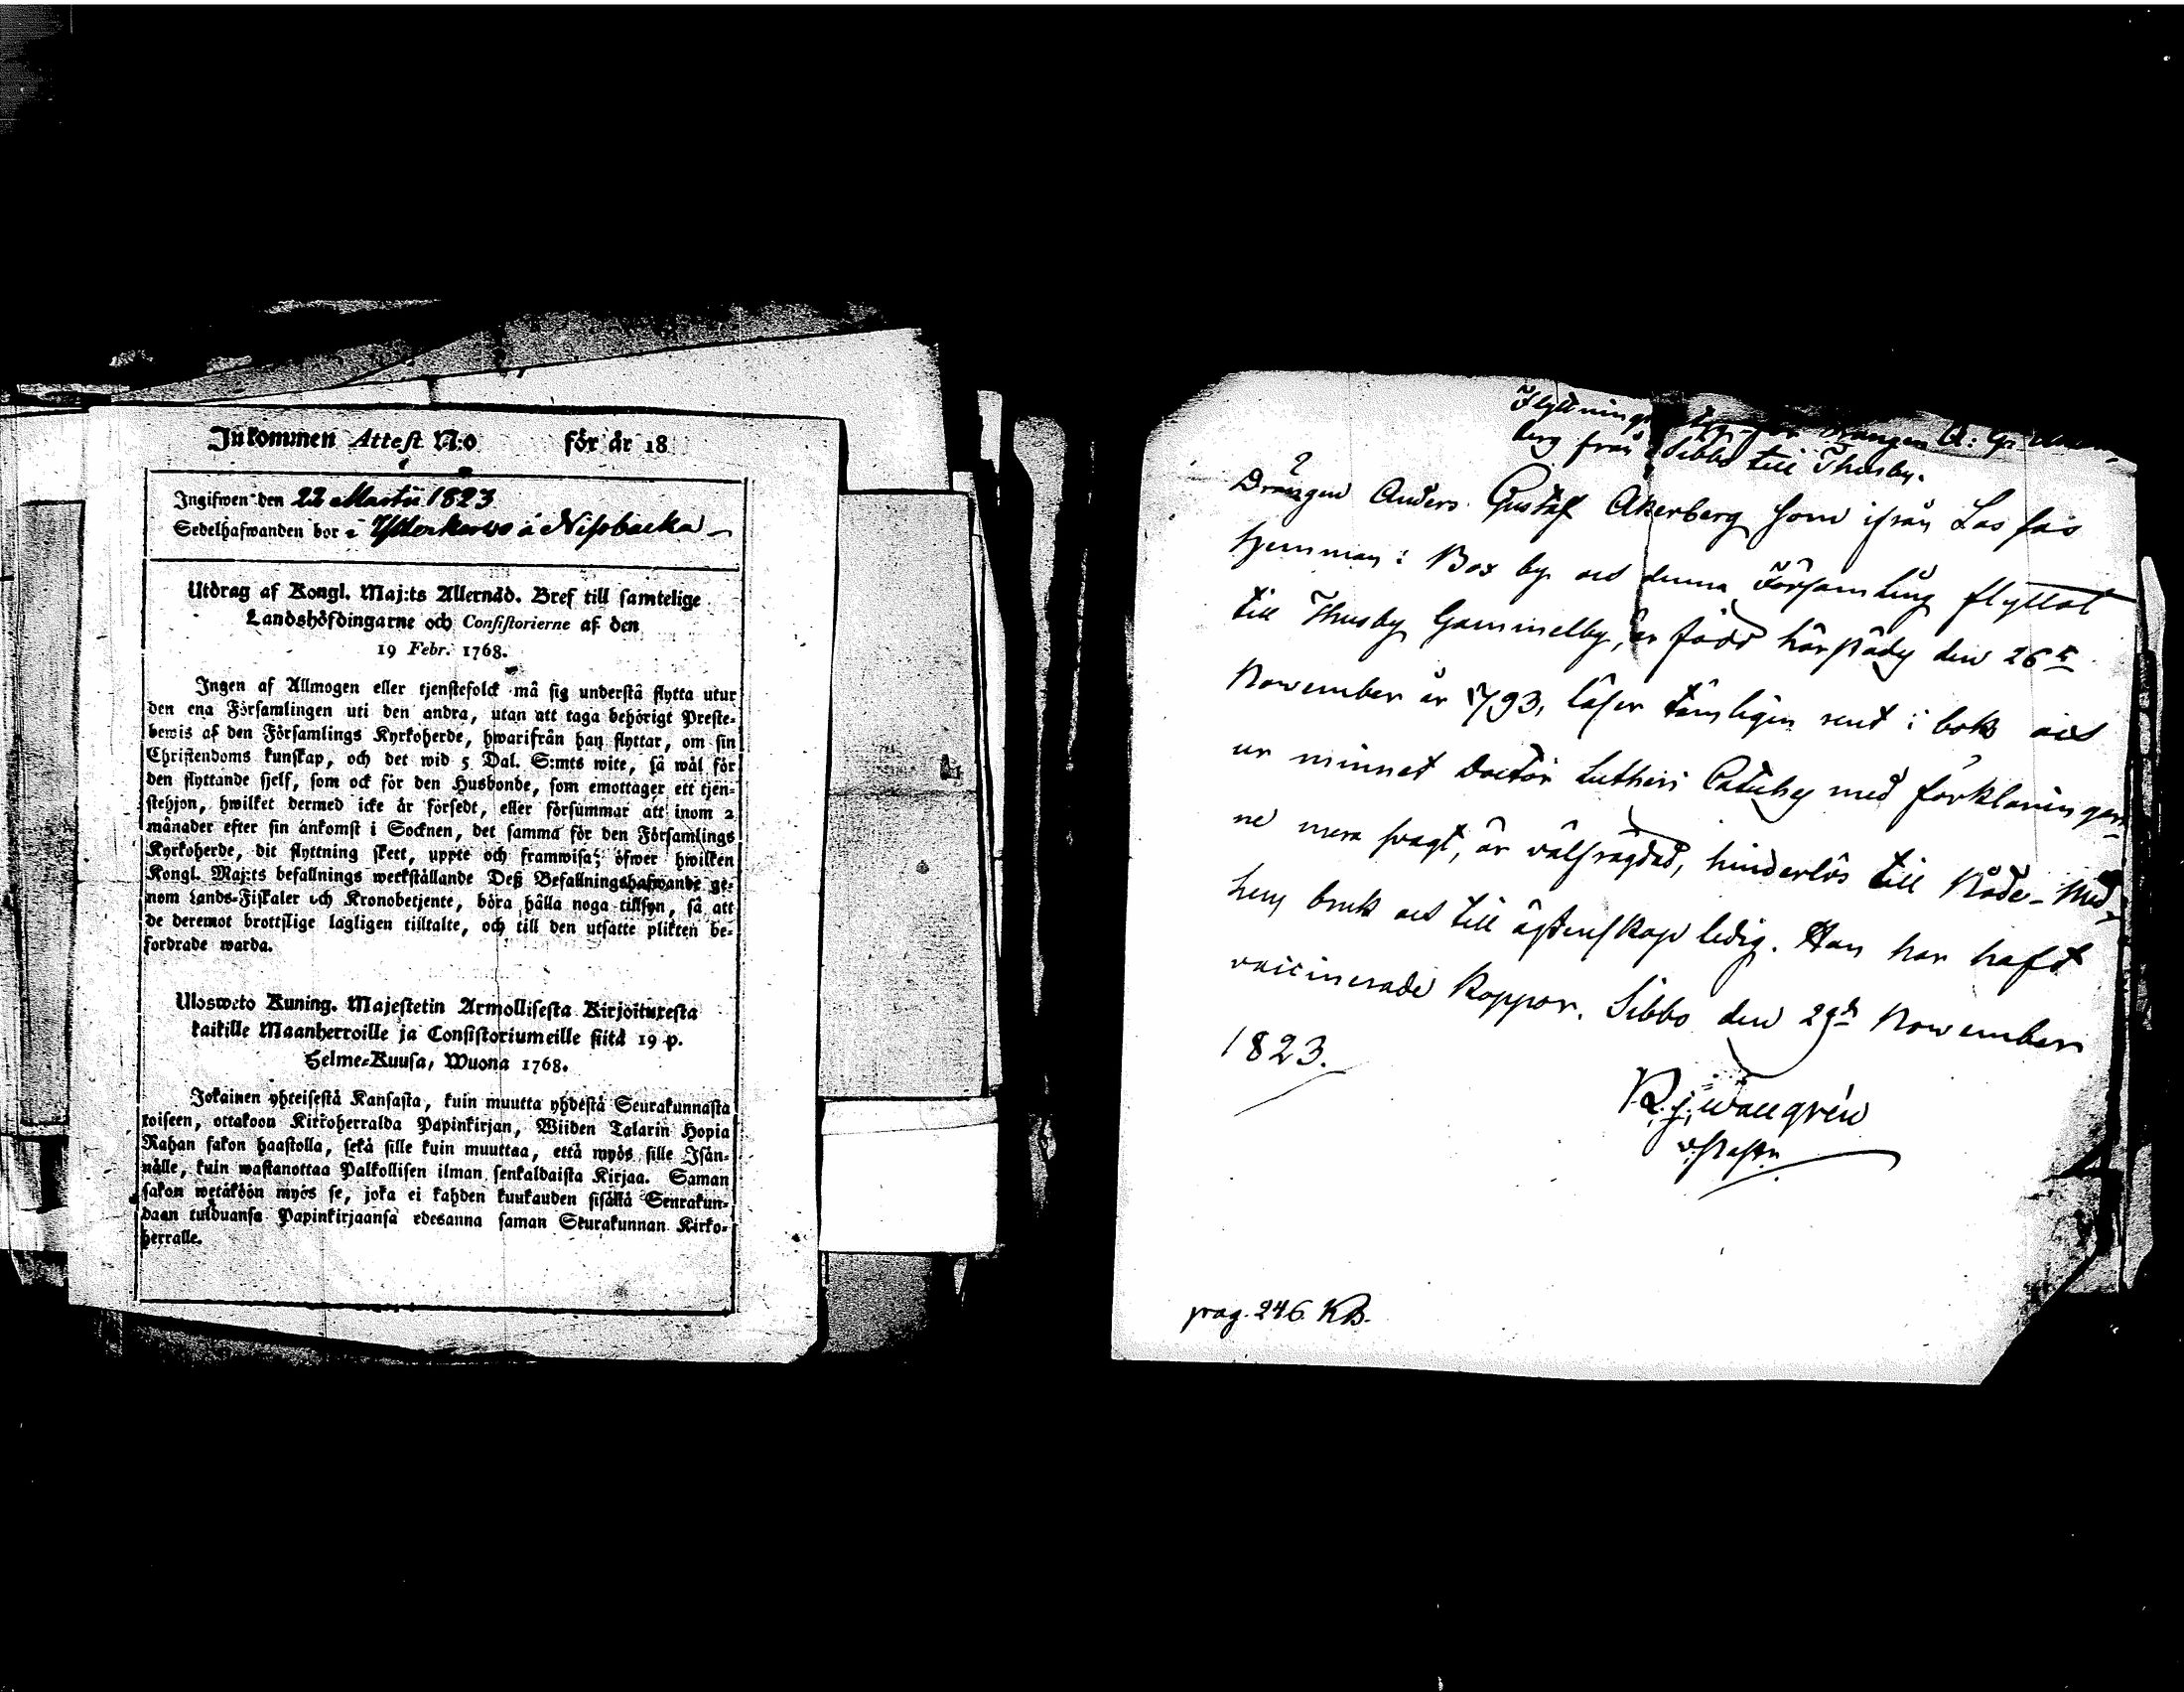 Inkommen Attest N:o för år 18
Ingifwen den 22 Martii 1823
Sedelhafwanden bor i Ytterkurws å Nissbacka
Utdrag af Kongl. Maj:ts Allernåd. Bref till samtelige
Landshöfdingarne och Consistorierne af den
19 Febr. 1768.
Ingen af Allmogen eller tjenstefolck må sig understå flytta utur
den ena Församlingen uti den andra, utan att taga behörigt Preste-
bewis af den Församlings Kyrkoherde, hwarifrån han flyttar, om sin
Christendoms kunskap, och det wid 5 Dal. S:mts wite, så wäl för
den flyttande sjelf, som ock för den Husbonde, som emottager ett tjen-
stehjon, hwilket dermed icke är försedt, eller försummar att inom 2
månader efter sin ankomst i Socknen, det samma för den Församlings
Kyrkoherde, dit flyttning skett, uppte och framwisa; öfwer hwilken
Kongl. Maj:ts befallnings werkställande Deß Befallningshafwande ge-
nom Lands-Fiskaler och Kronobetjente, böra hålla noga tillsyn, så att
de deremot brottslige lagligen tilltalte, och till den utsatte plikten be-
fordrade warda.
Ulosweto Kuning. Majestetin Armollisesta Kirjoituxesta
kaikille Maanherroille ja Consistoriumeille siitä 19 p.
Helme-Kuusa, Wuona 1768.
Jokainen yhteisestä Kansasta, kuin muutta yhdestä Seurakunnasta
toiseen, ottakoon Kirkoherralda Papinkirjan, Wiiden Talarin Hopia
Rahan sakon haastolla, sekä sille kuin muuttaa, että myös sille Isän-
nälle, kuin wastanottaa Palkollisen ilman senkaldaista Kirjaa. Saman
sakon wetäköön myös se, joka ei kahden kuukauden sisällä Seurakun-
daan tulduansa Papinkirjaansa edesanna saman Seurakunnan Kirko-
herralle.
Flyttnings Drängen A: G:
berg från Sibbo till Thusby.
Drängen Anders Gustaf Åkerberg som ifrån Las fas
hemman i Box by och denna Församling flyttat
till Thusby Gammelby, är född härstädes den 26te
November år 1793, läser tämligen rent i bok och
ur minnet Doctor Lutheri Cateches med förklaringar-
ne mera swagt, är välfrägdad, hinderlös till Nåde-Med-
lens bruk och till äktenskap ledig. Han har haft
vaccinerade Koppor. Sibbo den 29de November
1823.
R. J. Wallgrén
pag. 246 KB.